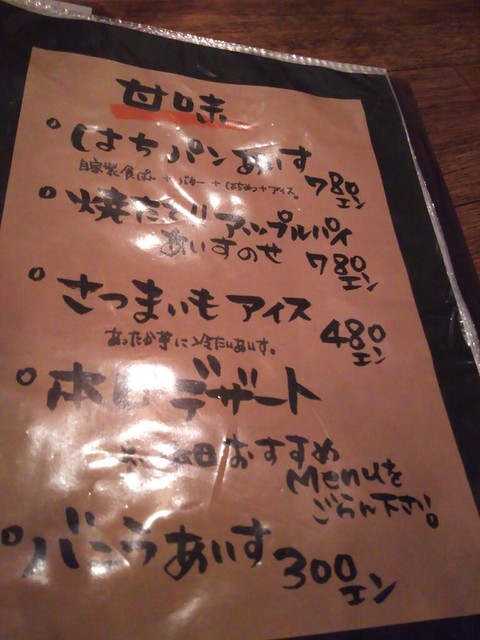 甘味
はちパンあいす
自家製食ぱん + バター + はちみつ + アイス。
780エン
焼たて!! アップルパイ
あいすのせ 780エン
さつまいもアイス
あったか芋に冷たいあいす。
480エン
本日デザート
本日おすすめ
Menuを
ごらん下さい。
バニラあいす 300エン